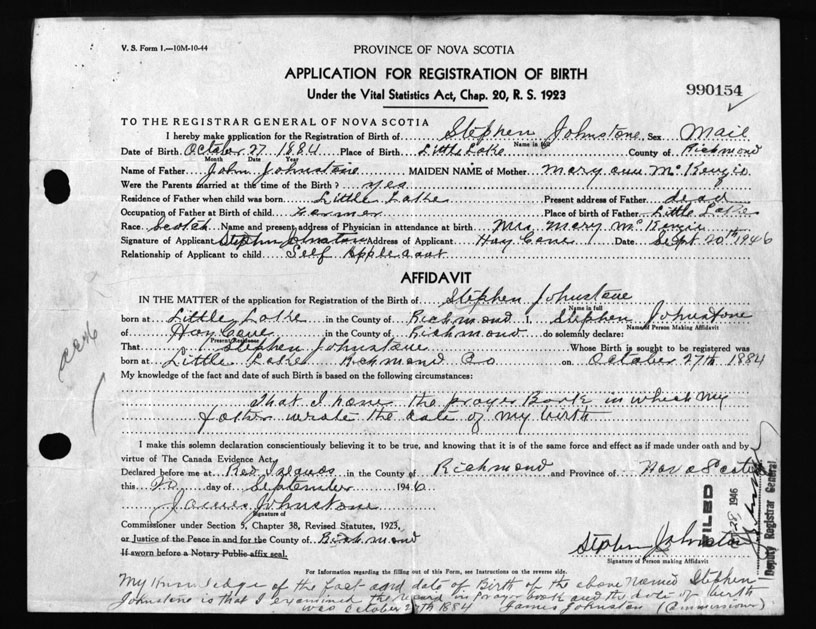 V. S. Form 1.—10M-10-44
PROVINCE OF NOVA SCOTIA
APPLICATION FOR REGISTRATION OF BIRTH
Under the Vital Statistics Act, Chap. 20, R. S. 1923
990154
TO THE REGISTRAR GENERAL OF NOVA SCOTIA
I hereby make application for the Registration of Birth of Stephen Johnstone Sex Mail
Name in full
Date of Birth October 27 1884 Place of Birth Little Lake County of Richmond
Month Date Year
Name of Father John Johnstone MAIDEN NAME of Mother Mary ann McKenzie
Were the Parents married at the time of the Birth? yes
Residence of Father when child was born Little Lake Present address of Father dead
Occupation of Father at Birth of child Farmer Place of birth of Father Little Lake
Race Scotch Name and present address of Physician in attendance at birth Mrs Mary McKenzie
Signature of Applicant Stephen Johnston Address of Applicant Hay Cove Date Sept 20th 1946
Relationship of Applicant to child Self
AFFIDAVIT
IN THE MATTER of the application for Registration of the Birth of Stephen Johnstone
Name in full
born at Little Lake in the County of Richmond I, Stephen Johnstone
Name of Person Making Affidavit
of Hay Cove in the County of Richmond do solemnly declare:
Present Residence
That Stephen Johnstone Whose Birth is sought to be registered was
born at Little Lake Richmond Co on October 27th 1884
My knowledge of the fact and date of such Birth is based on the following circumstances:
That I have the prayer Book in which my
father wrote the date of my birth
I make this solemn declaration conscientiously believing it to be true, and knowing that it is of the same force and effect as if made under oath and by
virtue of The Canada Evidence Act
Declared before me at Red Islands in the County of Richmond and Province of Nova Scotia
this 20 day of September 1946
James Johnstone
Signature of
Commissioner under Section 5, Chapter 38, Revised Statutes, 1923,
or Justice of the Peace in and for the County of Richmond
If sworn before a Notary Public affix seal.
Stephen Johnston
Signature of Person making Affidavit
FILED
1946
Deputy Registrar General
For Information regarding the filling out of this Form, see Instructions on the reverse side.
My knowledge of the fact and date of Birth of the above named Stephen
Johnstone is that I examined the record in prayer book and the date of birth
was October 27th 1884 James Johnston (Commissioner)